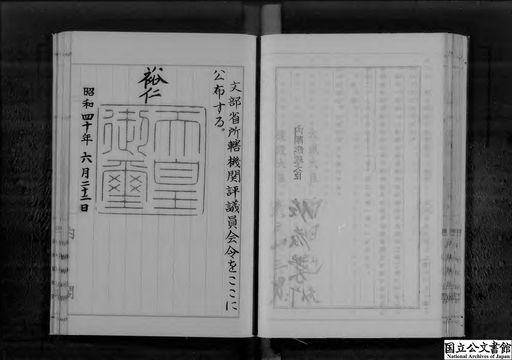 文部省所轄機関評議員会令をここに
公布する。
裕仁
天皇
御璽
昭和四十年六月二十二日
内閣総理大臣
国立公文書館
National Archives of Japan